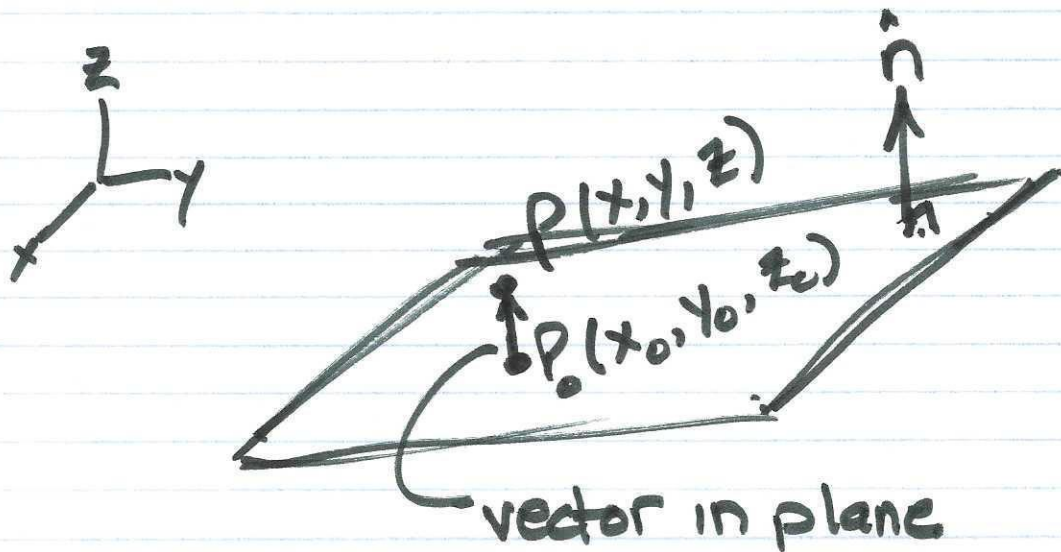 z
y
x
n̂
P(x,y,z)
P₀(x₀,y₀,z₀)
vector in plane